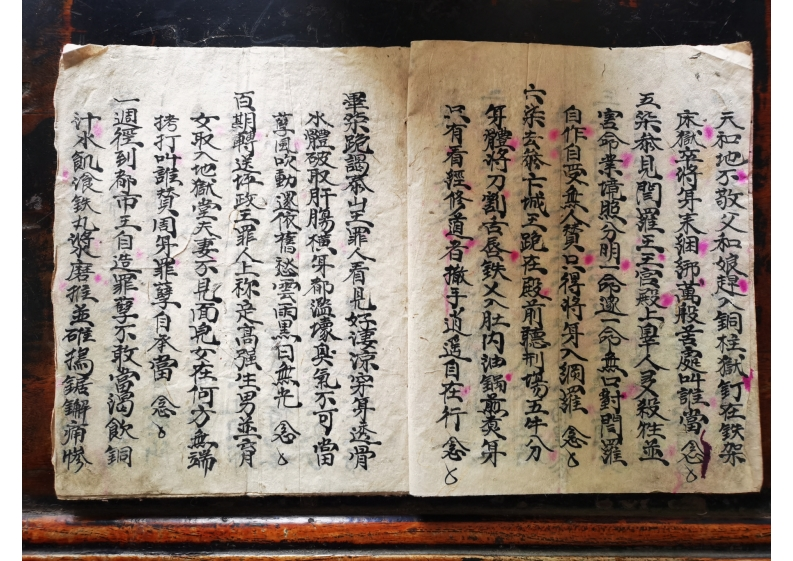 天和地不敬父和娘趕入銅柱獄釘在鉄架
床獄卒將身来綑綁萬般苦處叫誰當 念〻
五柒叅見閻羅王王宮殿上辠人多殺牲並
害命業境照分明一命還一命無口對閻羅
自作自受無人賛只得將身入網羅 念〻
六柒去叅卞城王跪在殿前聽刑場五牛分
身體將刀割舌唇鉄乂入肚内油鍋煎煑身
只有看經修道者撒手逍遥自在行 念〻
畢柒跪謁泰山王罪人看見好淒涼穿身透骨
水體破取肝腸橫身都濫壞臭氣不可當
孽風吹動還依舊愁雲雨黑日無光 念〻
百期轉送坪政王罪人上称定高强生男並育
女取入地獄堂夫妻不見面兒女在何方無端
拷打叫誰賛周身罪孽自承當 念〻
一週徑到都市王自造罪孽不敢當渴飲銅
汁水飢飡鉄丸漿磨推並碓搗鋸觧痛慘